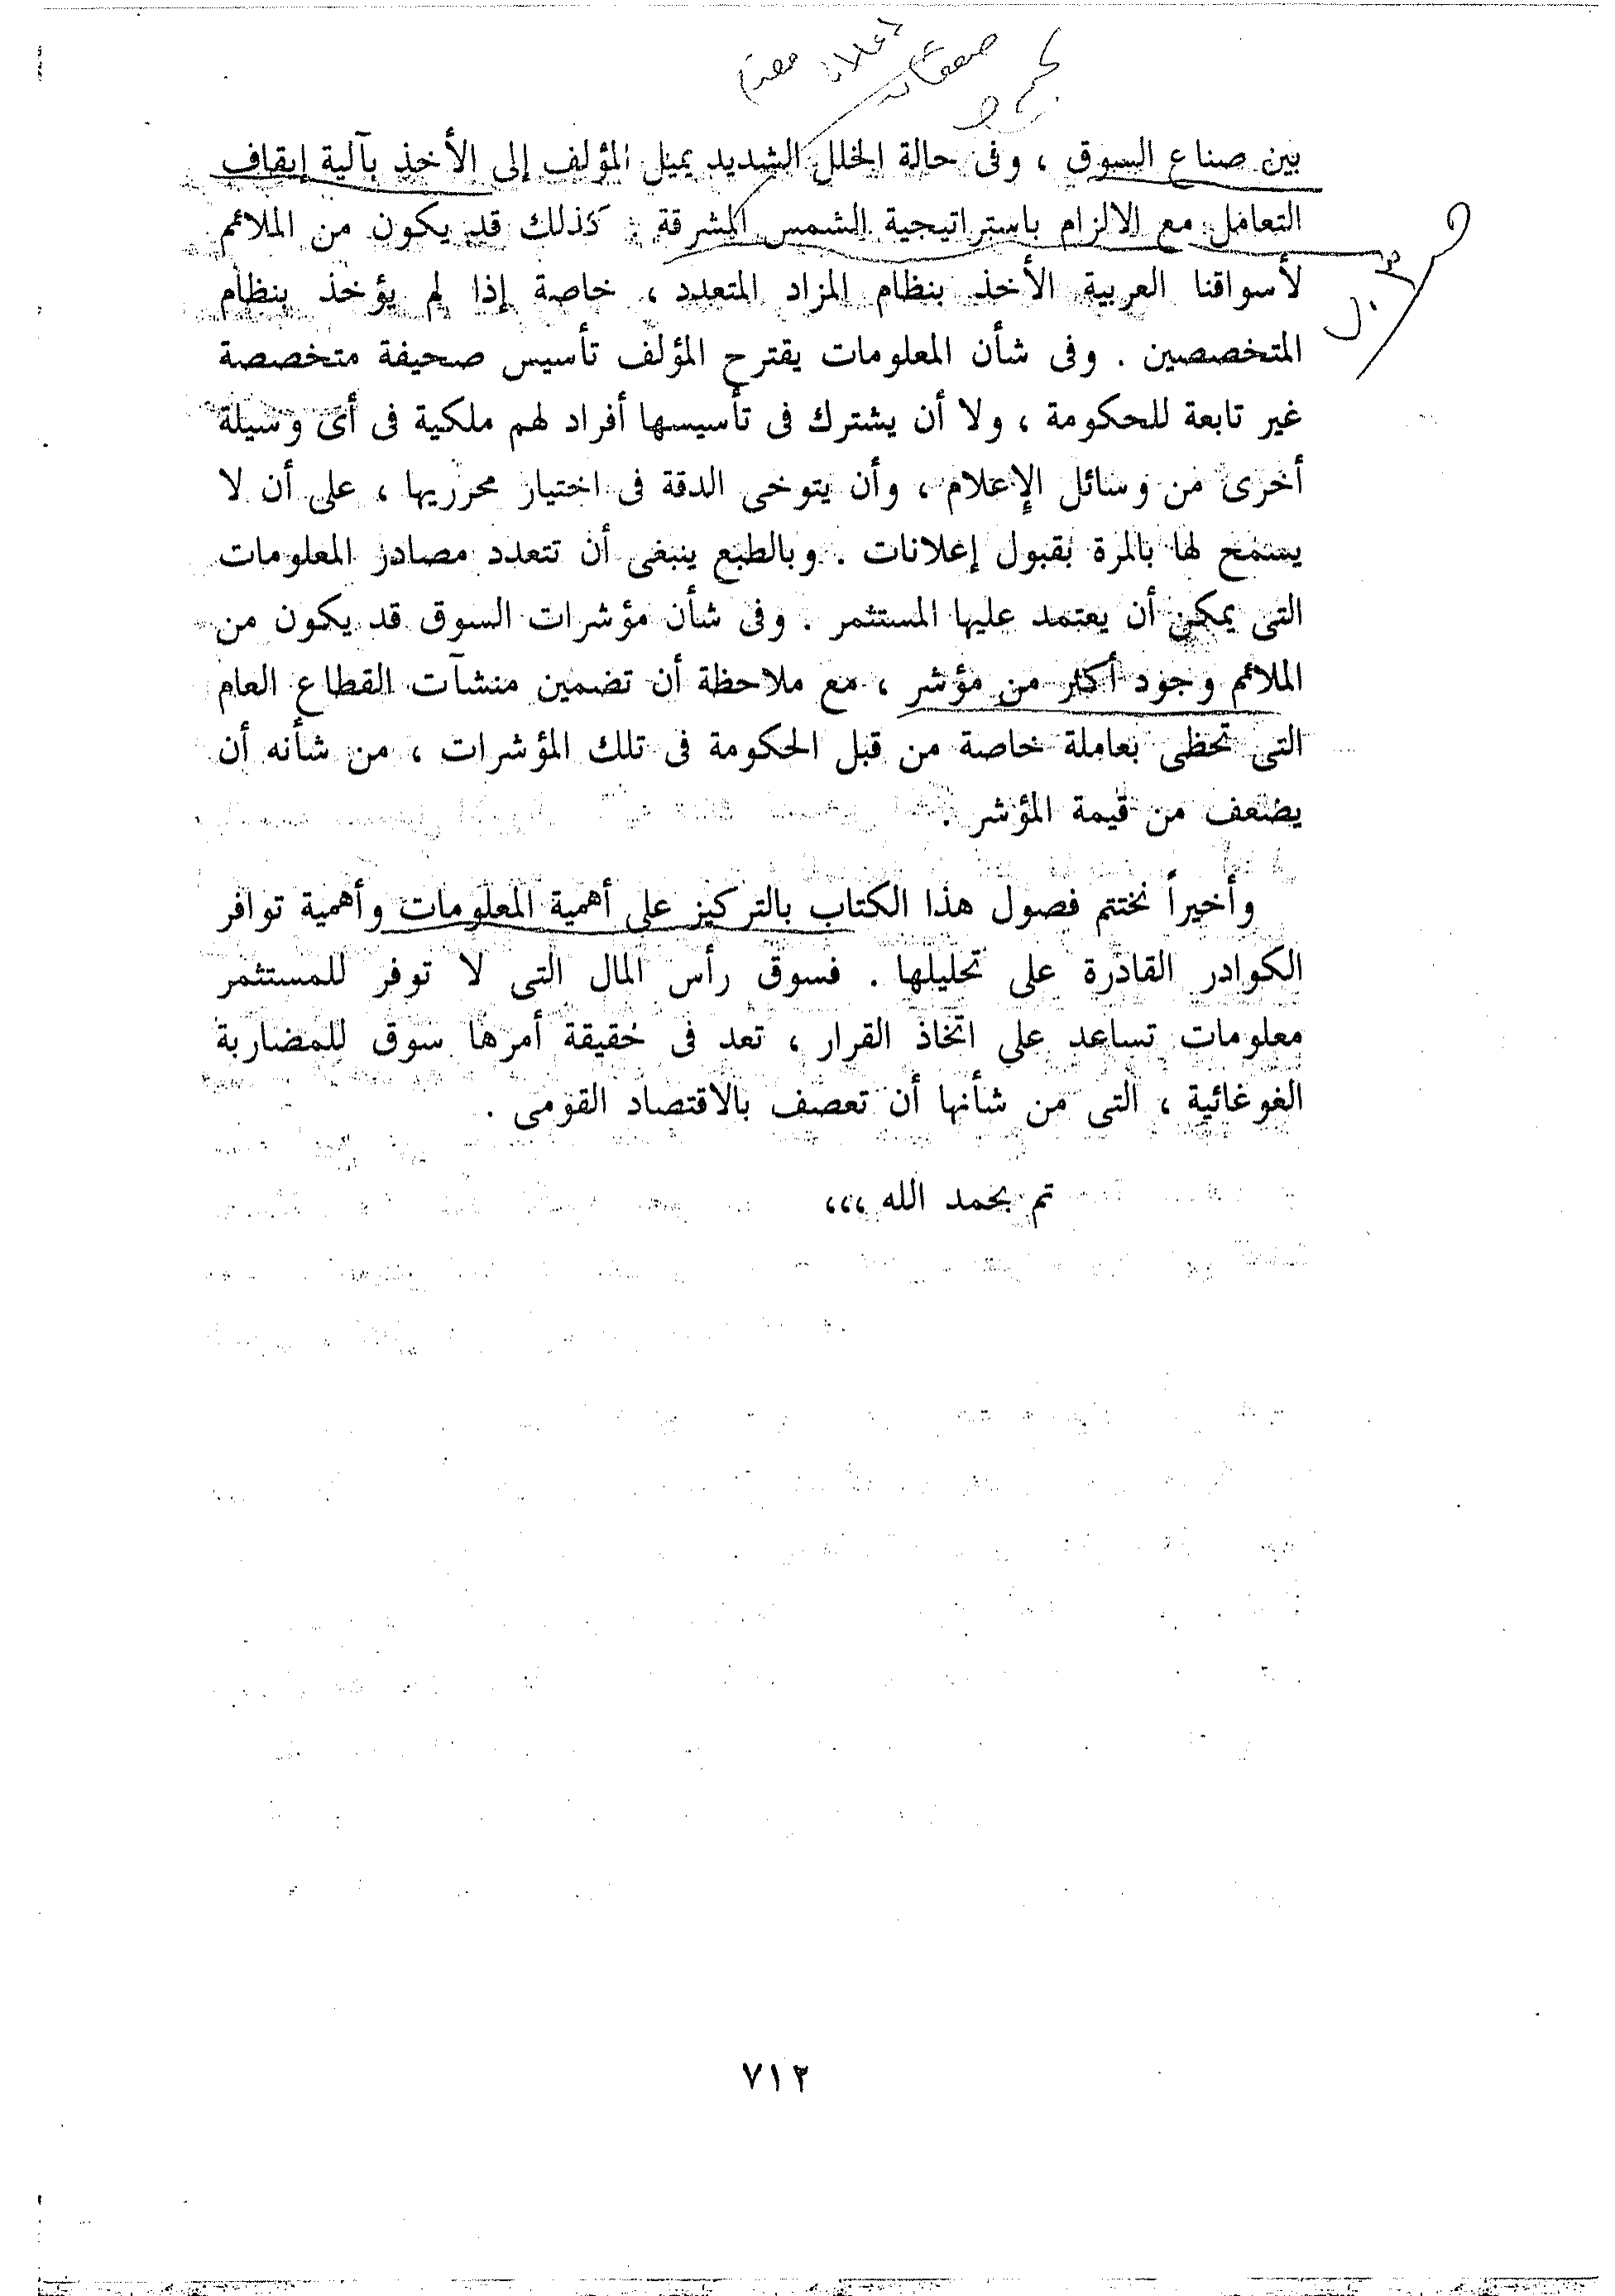 بين صناع السوق ، وفى حالة الخلل الشديد يميل المؤلف إلى الأخذ بآلية إيقاف
التعامل مع الالزام باستراتيجية الشمس المشرقة . كذلك قد يكون من الملائم
لأسواقنا العربية الأخذ بنظام المزاد المتعدد ، خاصة إذا لم يؤخذ بنظام
المتخصصين . وفى شأن المعلومات يقترح المؤلف تأسيس صحيفة متخصصة
غير تابعة للحكومة ، ولا أن يشترك فى تأسيسها أفراد لهم ملكية فى أى وسيلة
أخرى من وسائل الإعلام ، وأن يتوخى الدقة فى اختيار محرريها ، على أن لا
يسمح لها بالمرة بقبول إعلانات . وبالطبع ينبغى أن تتعدد مصادر المعلومات
التى يمكن أن يعتمد عليها المستثمر . وفى شأن مؤشرات السوق قد يكون من
الملائم وجود أكثر من مؤشر ، مع ملاحظة أن تضمين منشآت القطاع العام
التى تحظى بعاملة خاصة من قبل الحكومة فى تلك المؤشرات ، من شأنه أن
يضعف من قيمة المؤشر .
وأخيراً نختتم فصول هذا الكتاب بالتركيز على أهمية المعلومات وأهمية توافر
الكوادر القادرة على تحليلها . فسوق رأس المال التى لا توفر للمستثمر
معلومات تساعد على اتخاذ القرار ، تعد فى حقيقة أمرها سوق للمضاربة
الغوغائية ، التى من شأنها أن تعصف بالاقتصاد القومى .
تم بحمد الله ،،،
٧١٢